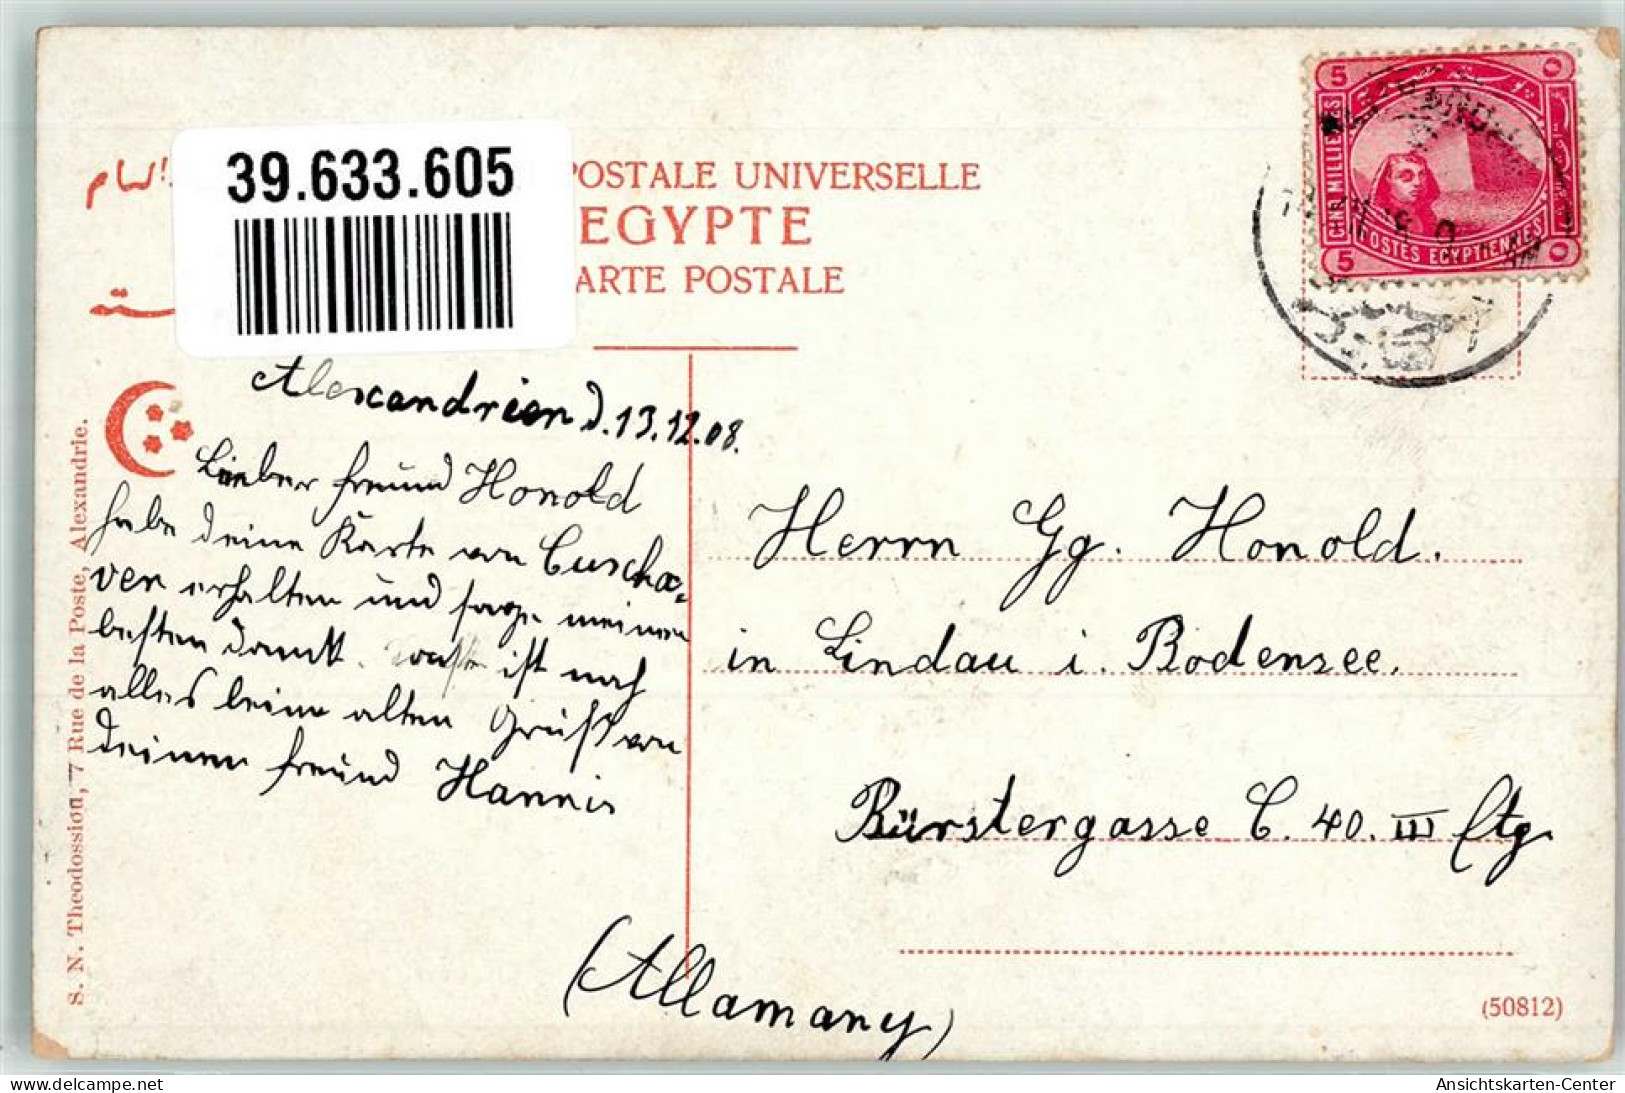 39.633.605
POSTALE UNIVERSELLE
EGYPTE
ARTE POSTALE
5
CINQ MILLIEMES
POSTES EGYPTIENNES
5
Alexandrien d. 13.12.08.
Lieber Freund Honold
habe deine Karte von Cuscha=
ven erhalten und sage meinen
besten Dankt. sonst ist noch
alles beim alten Gruß von
deinem Freund Hannis
Herrn Gg. Honold.
in Lindau i. Bodensee.
Bürstergasse C. 40. III Etg.
(Allamany)
S. N. Theodossiou, 7 Rue de la Poste, Alexandrie.
(50812)
delcampe.net
Ansichtskarten-Center